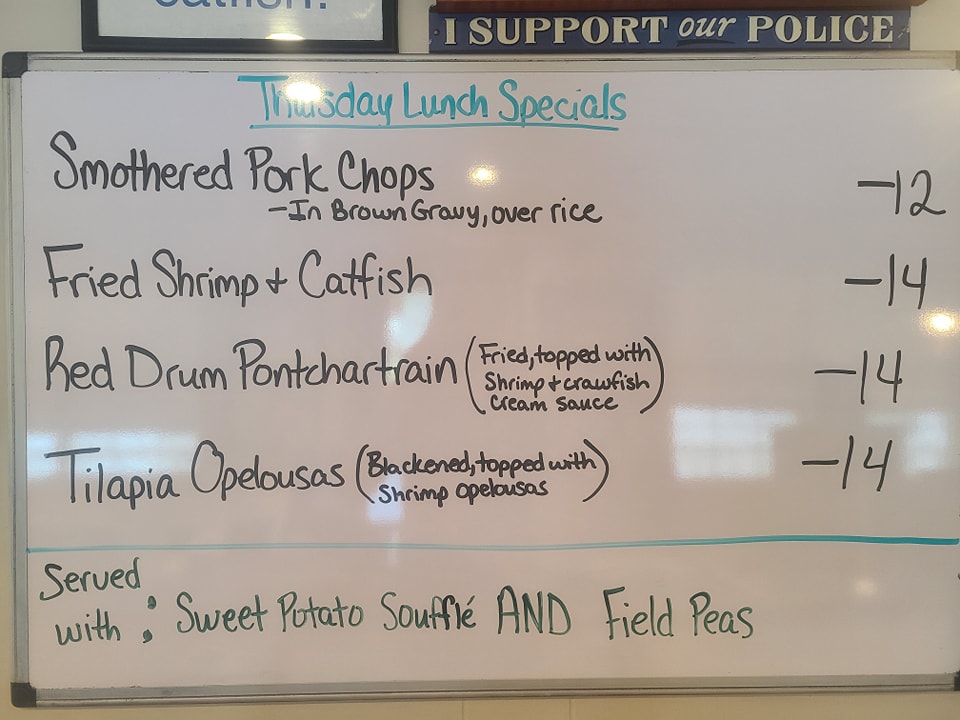 catfish.
I SUPPORT our POLICE
Thursday Lunch Specials
Smothered Pork Chops -12
-In Brown Gravy, over rice
Fried Shrimp + Catfish -14
Red Drum Pontchartrain (Fried, topped with -14
Shrimp + crawfish
cream sauce)
Tilapia Opelousas (Blackened, topped with -14
Shrimp opelousas)
Served
with : Sweet Potato Soufflé AND Field Peas